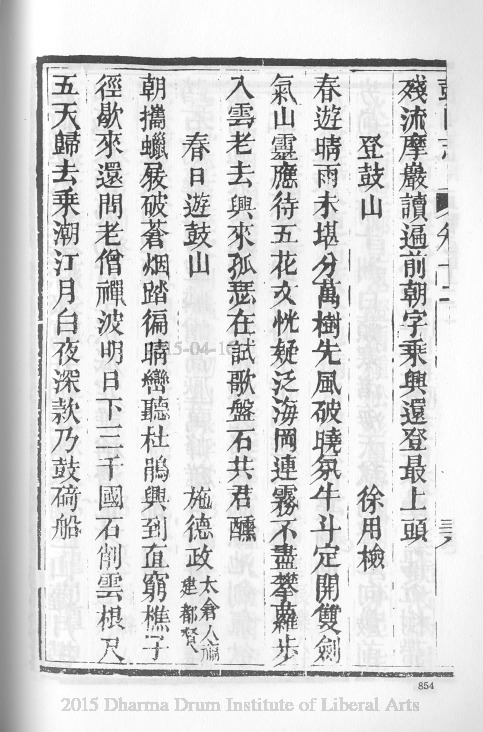 殘流摩巖讀遍前朝字乘興還登最上頭
登鼓山 徐用檢
春遊晴雨未堪分萬樹先風破曉氛牛斗定開雙劍
氣山靈應待五花文恍疑泛海岡連霧不盡攀蘿步
入雲老去興來孤瑟在試歌盤石共君醺
春日遊鼓山 施德政 太倉人福建都督
朝攜蠟屐破蒼烟踏徧晴巒聽杜鵑興到直窮樵子
徑歇來還問老僧禪波明日下三千國石削雲根尺
五天歸去乘潮汀月白夜深款乃鼓碕船
854
2015 Dharma Drum Institute of Liberal Arts